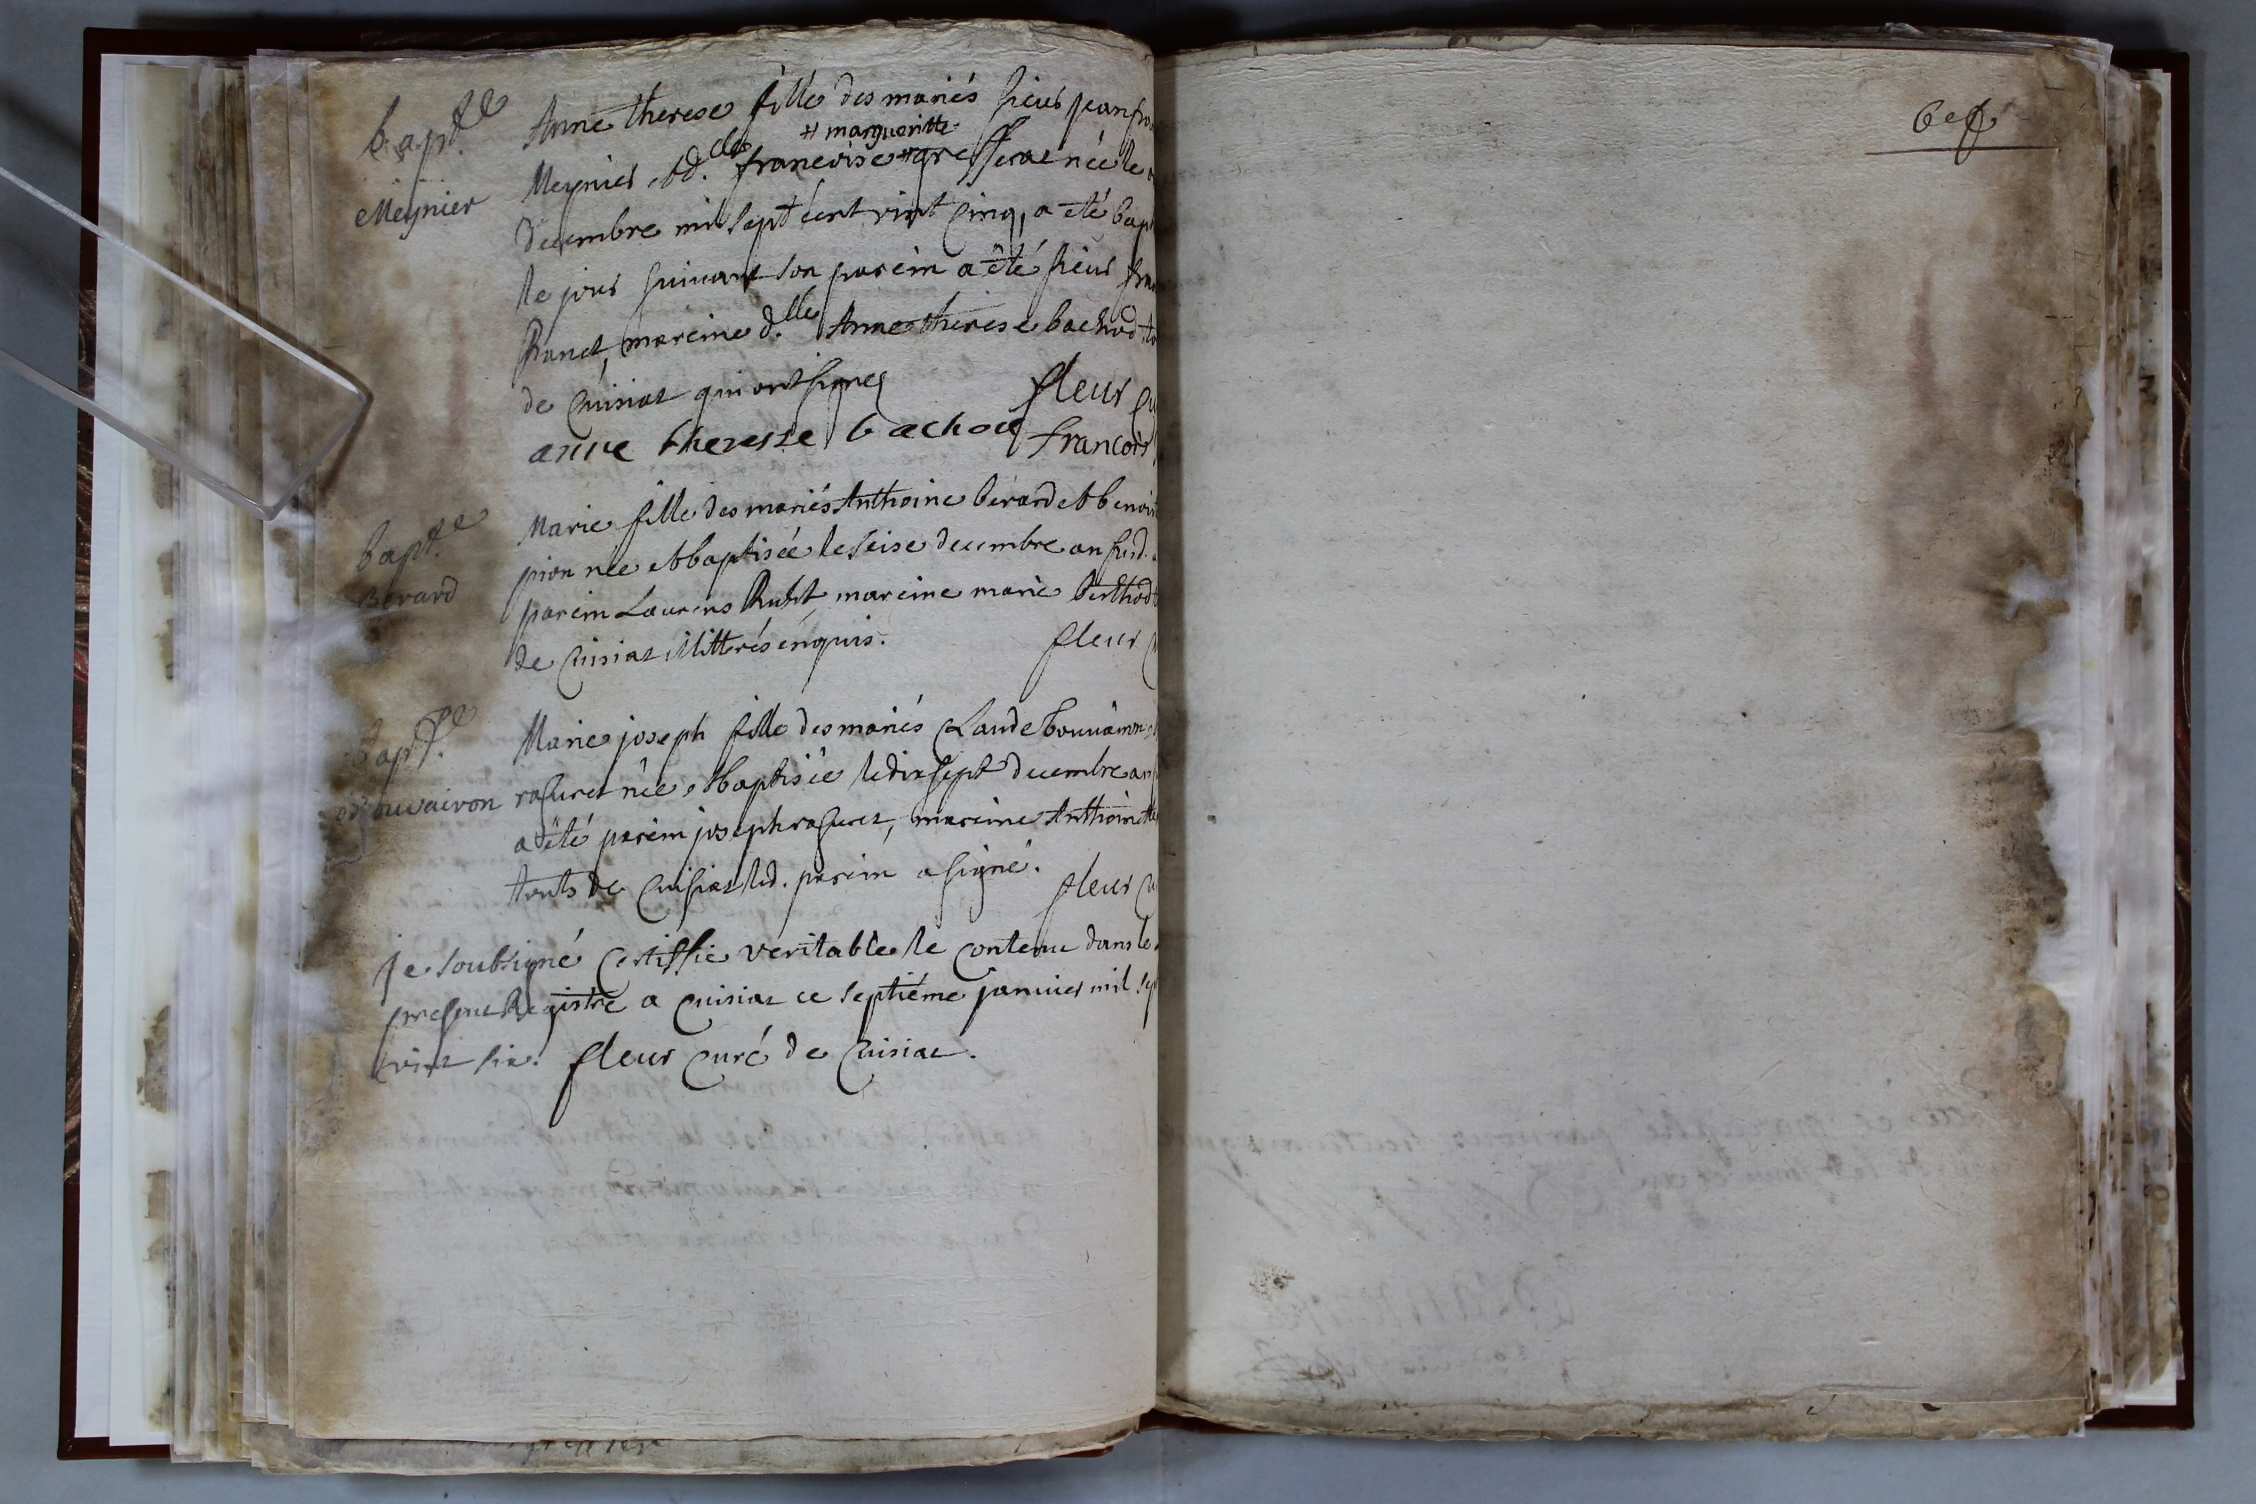 bapt.e
Meynier
Anne therese fille des mariés sieur jean fra
# margueritte
Meynier et d.lle francoise # gresserat née le
decembre mil sept cent vint cinq, a été bap
le jour suivant son parein a été sieur fra
Ranet, mareine d.lle Anne therese bachod to
de Cuisiat qui ont signes
fleur cu
anne theresse bachod francois
bapt.e
Berard
Marie fille des mariés Anthoine berard et benoi
pion née et baptisée le seise decembre an susd.
parein Laurens Rubit, mareine marie berthod
de Cuisiat illittérés énquis.
fleur c
bapt.e
Bouvairon
Marie joseph fille des mariés Claude bouvairon
rasuret née et baptisée le dix sept decembre an
a été parein joseph rasuret, mareine Anthoinette
touts de Cuisiat led. parein a signé.
fleur cu
je soubsigné Certiffie veritable le Contenu dans le
present Registre a Cuisiat ce septiéme janvier mil sep
vint six. fleur Curé de Cuisiat.